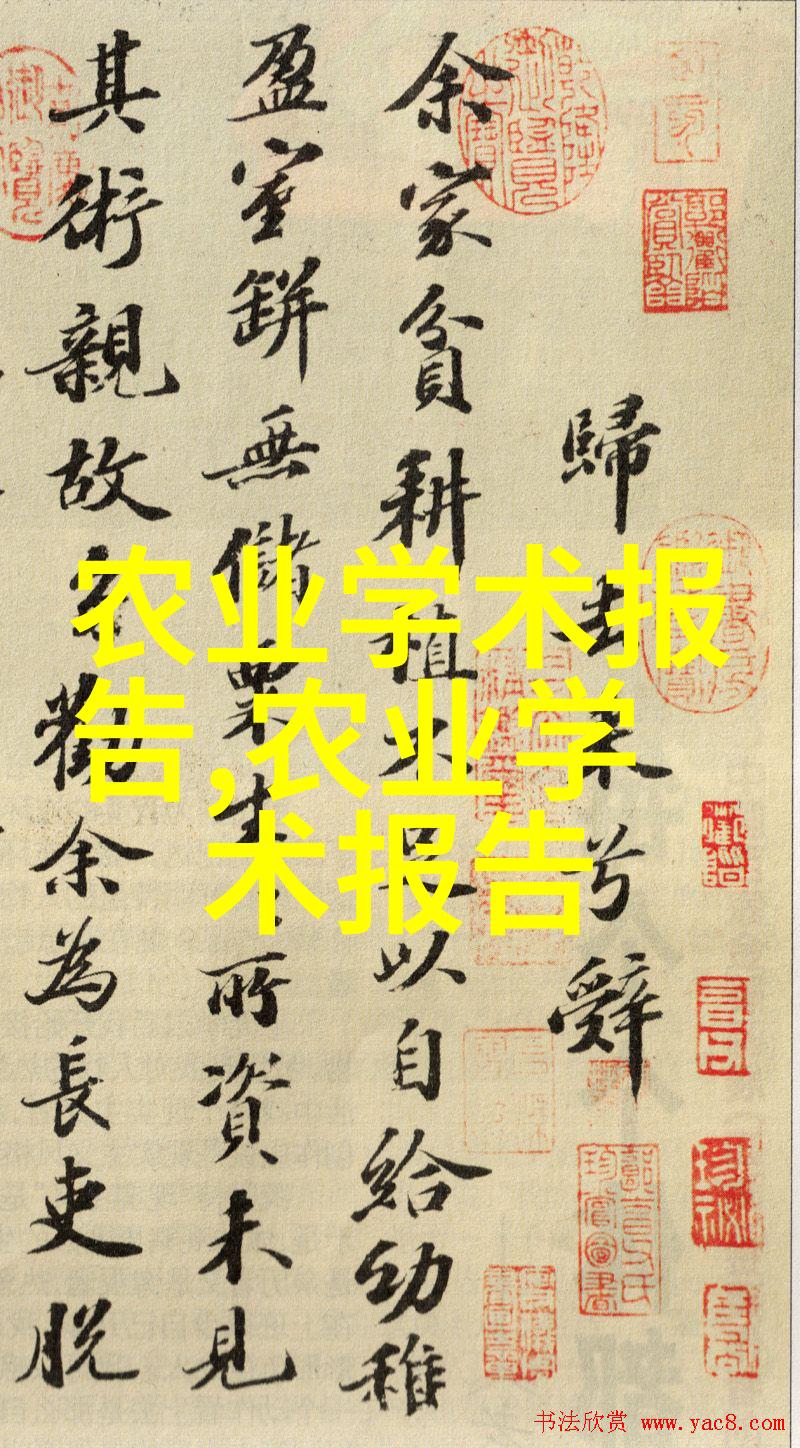 歸去來兮辭
余家貧耕植不足以自給幼稚
盈室缾無儲粟生生所資未見
其術親故多勸余為長吏脫
农业学术报
告,农业学
术报告
书法欣赏 www.yac8.com